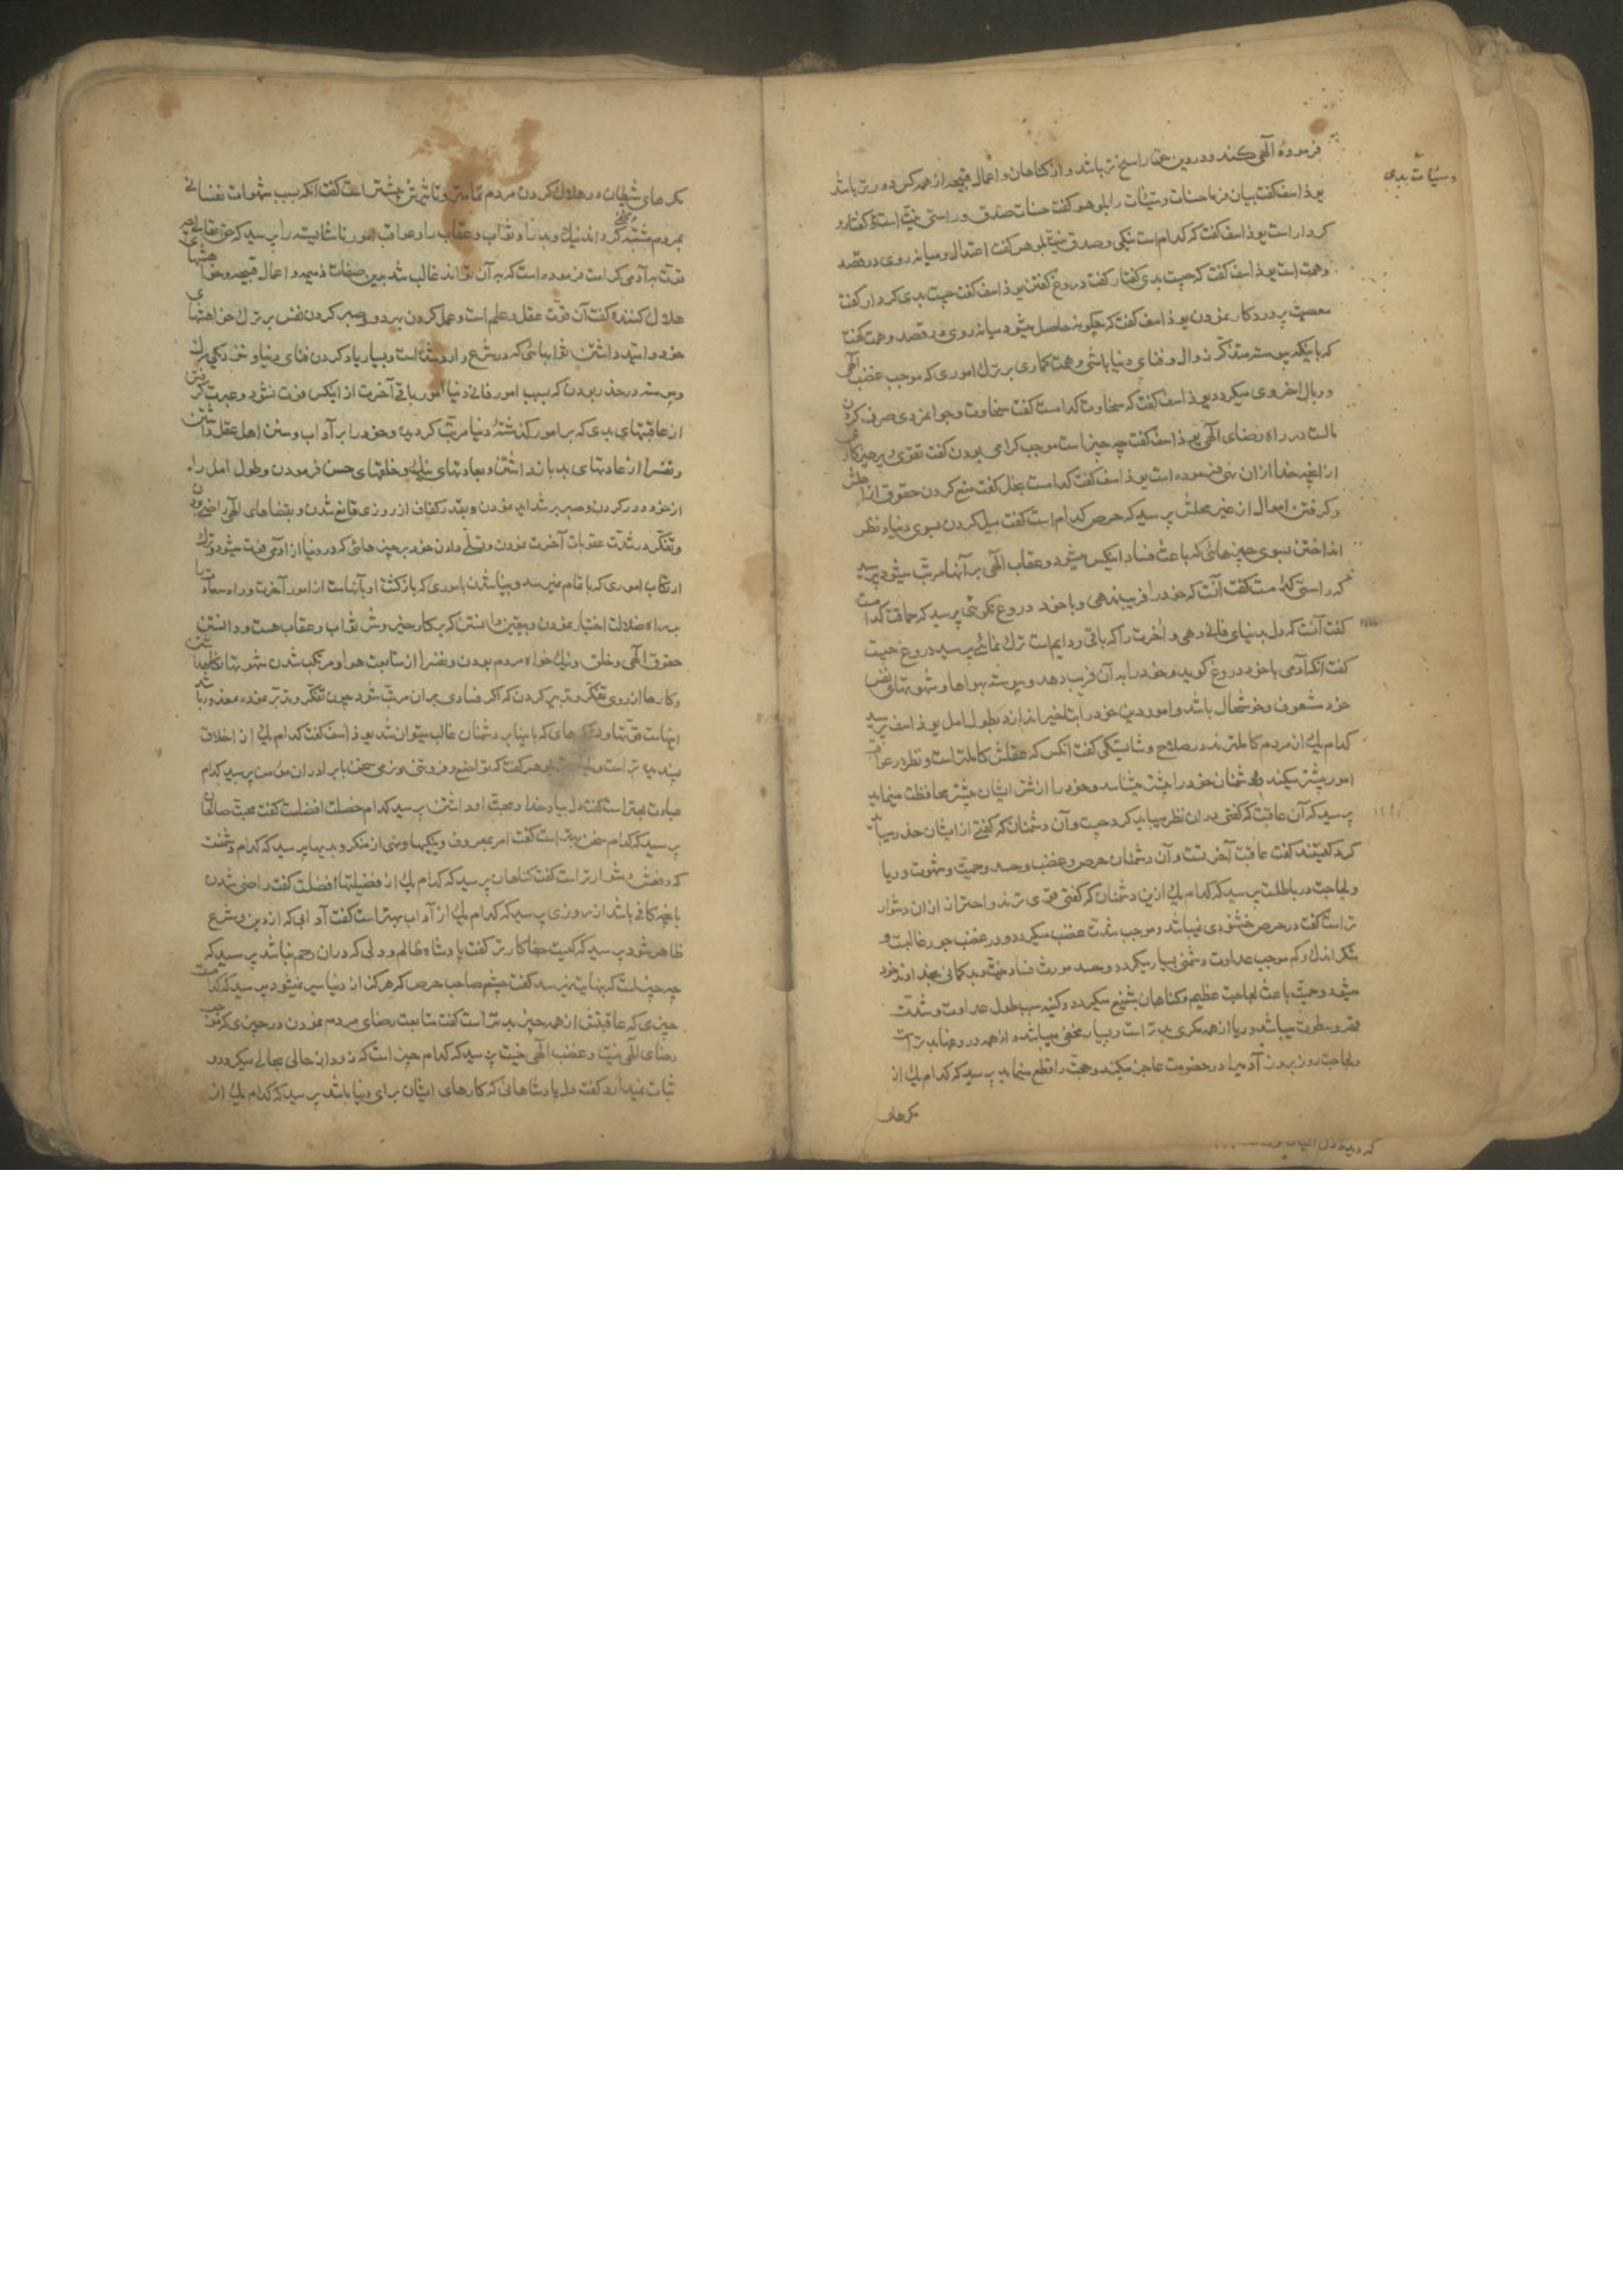 فرمودهٔ الهی کند و در دین حق راسخ تر باشد و از گناهان و اعمال قبیحه از همه کس دورتر باشد
وسیّات بدی
یوذاسف گفت بیان فرما حسنات و سیّئات را بلوهر گفت حسنات صدق و راستی نیّت است و گفتار و
کردار است یوذاسف گفت که کدام است نیکی و صدق نیّت بلوهر گفت اعتدال و میانه روی در قصد
و همت است یوذاسف گفت که چیست بدی گفتار گفت دروغ گفتن یوذاسف گفت چیست بدی کردار گفت
معصیت پروردگار نمودن یوذاسف گفت که چگونه حاصل میشود میانه روی در قصد و همت گفت
که باینکه پیوسته متذکر زوال و فنای دنیا باشی و همت گماری بر ترک اموری که موجب غضب الهی
و وبال اخروی میگردد یوذاسف گفت که سخاوت کدامست گفت سخاوت و جوانمردی صرف کردن
مالست در راه رضای الهی یوذاسف گفت چه چیز است موجب کرامی بودن گفت تقوی و پرهیزکاری
از آنچه خدا از آن نهی فرموده است یوذاسف گفت کدامست بخل گفت منع کردن حقوق از اهلش
و گرفتن اموال از غیر محلش پرسید که حرص کدام است گفت میل کردن بسوی دنیا و نظر
انداختن بسوی چیزهائی که باعث فساد آنکس میشود و عقاب الهی بر آنها مرتب میشود پرسید
که راستی کدامست گفت آنست که خود را فریب ندهی و با خود دروغ نگوئی پرسید که حماقت کدامست
گفت آنست که دل بدنیای فانی دهی و آخرت را که باقی و دایم است ترک نمائی پرسید دروغ چیست
گفت آنکه آدمی با خود دروغ گوید و خود را به آن فریب دهد و پیوسته بهواها و شهوتهای نفس
خود مشعوف و خوشحال باشد و امور دین خود را بتاخیر اندازد بطول امل یوذاسف پرسید
کدام یک از مردم کاملترند در صلاح و شایستگی گفت آنکس که عقلش کاملتر است و نظر در عواقب
امور بیشتر میکند و دشمنان خود را بیشتر میشناسد و خود را از شرّ ایشان بیشتر محافظت مینماید
پرسید که آن عاقبت که گفتی در آن نظر میباید کرد چیست و آن دشمنان که گفتی از ایشان حذر میباید
کرد کیستند گفت عاقبت آخرتست و آن دشمنان حرص و غضب و حسد و حمیّت و شهوت و ریا
و لجاجت در باطلست پرسید که کدام یک ازین دشمنان که گفتی قوی ترند و احتراز از آن دشوار
تر است گفت در حرص خشنودی نمیباشد و موجب شدّت غضب میگردد و در غضب جور غالبست و
شکر اندک و کم موجب عداوت و دشمنی بسیار میگردد و حسد مورث فساد نیّت و بدگمانی بخداوند خود
میشود و حمیّت باعث لجاجت عظیم و گناهان شنیع میگردد و کینه سبب طول عداوت و شدّت
قهر و سطوت میباشد و ریا از همه مکری بدتر است و بسیار مخفی میباشد و از همه دروغها بدتر است
و لجاجت روز بروز آدمی را در خصومت عاجز میکند و حجت را قطع مینماید پرسید که کدام یک از
مکرهای
مکرهای شیطان در هلاک کردن مردم تمامتر و تاثیرش بیشتر است گفت آنکه بسبب شهوات نفسانی
بمردم مشتبه گرداند نیک و بد را و ثواب و عقاب را و عواقب امور ناشایسته را پرسید که حق تعالی چه
قوّت به آدمی کرامت فرموده است که به آن تواند غالب شد برین صفات ذمیمه و اعمال قبیحه و خواهشهای
هلاک کننده گفت آن قوّت عقل و علم است و عمل کردن بهر دو و صبر کردن نفس بر ترک خواهشهای
خود و امید داشتن ثوابهائی که در شرع وارد شده است و بسیار یاد کردن فنای دنیا و نزدیکی مرگ
و پیوسته در حذر بودن که بسبب امور فانی دنیا امور باقی آخرت از آنکس فوت نشود و عبرت گرفتن
از عاقبتهای بدی که بر امور گذشتهٔ دنیا مرتب گردیده و خود را بر آداب و سنن اهل عقل داشتن
و نفس را از عادتهای بد بازداشتن و بعادتهای نیک و خلقهای حسن فرمودن و طول امل را
از خود دور کردن و صبر بر شداید نمودن و بقدر کفاف از روزی قانع شدن و بقضاهای الهی راضی بودن
و تفکر در شدّت عقوبات آخرت نمودن و تسلی دادن خود بر چیزهائی که در دنیا از آدمی فوت میشود و ترک
ارتکاب اموری که باتمام نمیرسد و بینا شدن باموری که بازگشت او بآنهاست از امور آخرت و راه سعادت را
بر راه ضلالت اختیار نمودن و بیقین دانستن که بر کار خیر و شر ثواب و عقاب هست و دانستن
حقوق الهی و خلق و نیک خواه مردم بودن و نفس را از متابعت هوا و مرتکب شدن شهوتها نگاهداشتن
و کارها از روی تفکر و تدبر کردن که اگر فسادی بر آن مرتب شود چون تفکر و تدبر نموده معذور باشد
اینهاست قوّتها و لشکرهای که باینها بر دشمنان غالب میتوان شد یوذاسف گفت کدام یک از اخلاق
پسندیده تر است بلوهر گفت که تواضع و فروتنی و نرمی سخن با برادران مؤمن پرسید کدام
عبادت بهتر است گفت دل بیاد خدا و محبت او داشتن پرسید کدام خصلت افضلست گفت محبت صالحان
پرسید که کدام سخن بهتر است گفت امر بمعروف و نیکیها و نهی از منکر و بدیها پرسید که کدام دشمنست
که دفعش دشوارتر است گفت گناهان پرسید که کدام یک از فضیلتها افضلست گفت راضی شدن
بآنچه کافی باشد از روزی پرسید که کدام یک از آداب بهتر است گفت آدابی که از دین و شرع
ظاهر شود پرسید که کیست جفاکارتر گفت پادشاه ظالم و دلی که در آن رحم نباشد پرسید که
چه چیز است که بنهایت نمیرسد گفت چشم صاحب حرص که هرگز از دنیا سیر نمیشود پرسید که کدامست
چیزی که عاقبتش از همه چیز بدتر است گفت متابعت رضای مردم نمودن در چیزی که موجب
رضای الهی نیست و غضب الهی نیست پرسید که کدام چیز است که زود از حالی بحالی میگردد و
ثبات نمیدارد گفت دل پادشاهانی که کارهای ایشان برای دنیا باشد پرسید که کدام یک از